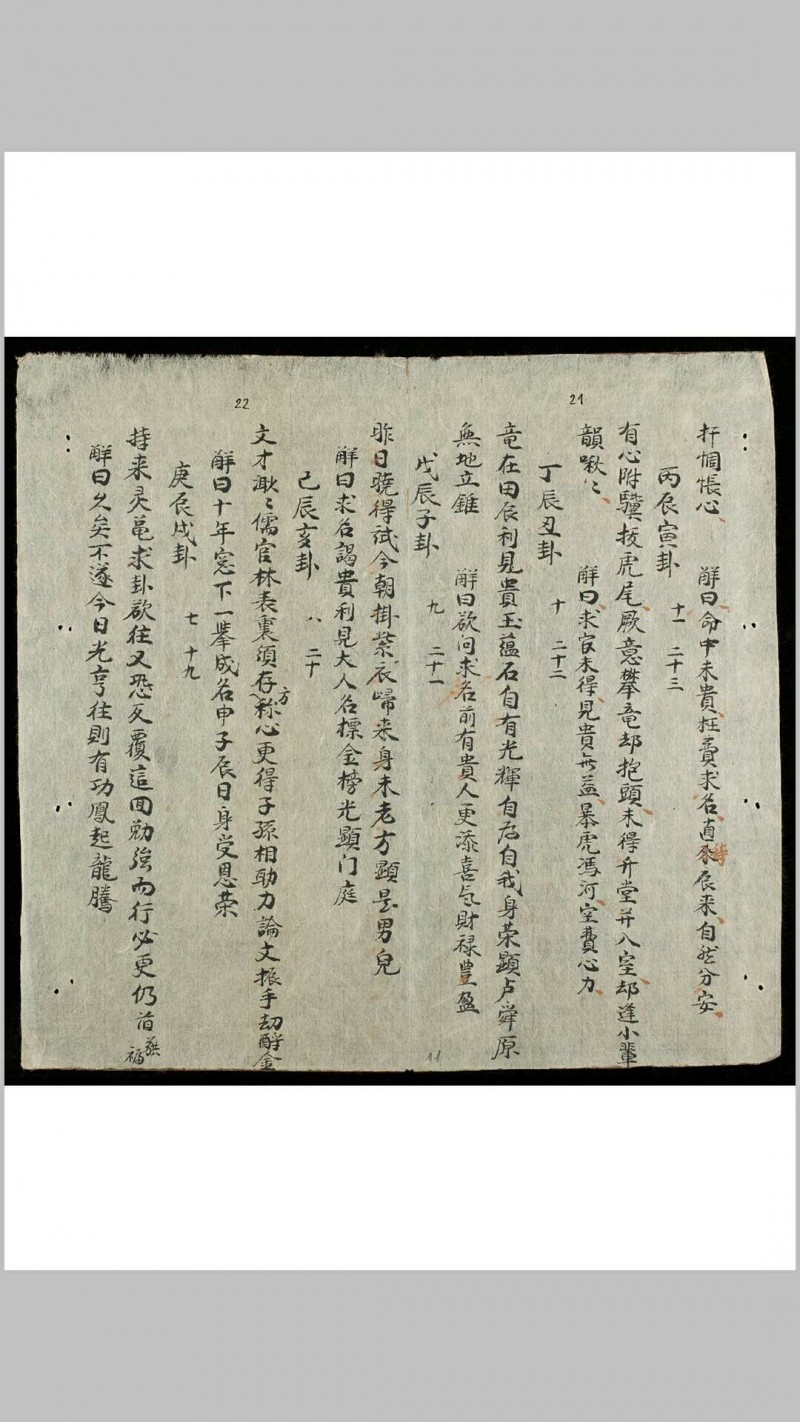 21
扞惆悵心　解曰命中未貴枉費求名直待辰来自然分安
丙辰寅卦　十一　二十三
有心附驥拔虎尾厥意攀竜却抱頭未得升堂并入室却逢小輩
韻啾〻　解曰求官未得見貴无益暴虎馮河空費心力
丁辰丑卦　十　二十二
竜在田辰利見貴玉蕴石自有光輝自为自我身荣顕卢舜原
無地立錐　解曰欲问求名前有貴人更添喜气財禄豊盈
戊辰子卦　九　二十一
昨日驍得試今朝掛紫衣歸来身未老方顕是男兒
解曰求名謁貴利見大人名標金榜光顕门庭
22
己辰亥卦　八　二十
文才濈〻儒官林表裏須存方称心更得子孫相助力論文振手却酧金
解曰十年窓下一舉成名申子辰日身受恩荣
庚辰戌卦　七　十九
持来灵龟求卦欲往又恐反覆這回勁強而行必更仍首
福
解曰久矣不遂今日光亨往則有功鳳起龍騰
11